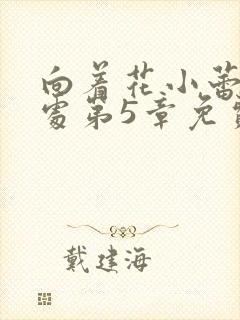 向着花小蕾
处第5章免费
戴建海